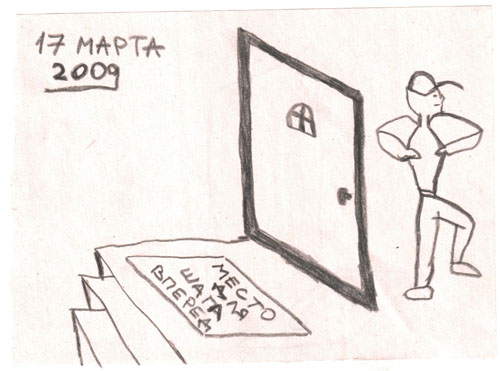 17 МАРТА
2009
МЕСТО
ДЛЯ
ШАГА
ВПЕРЕД